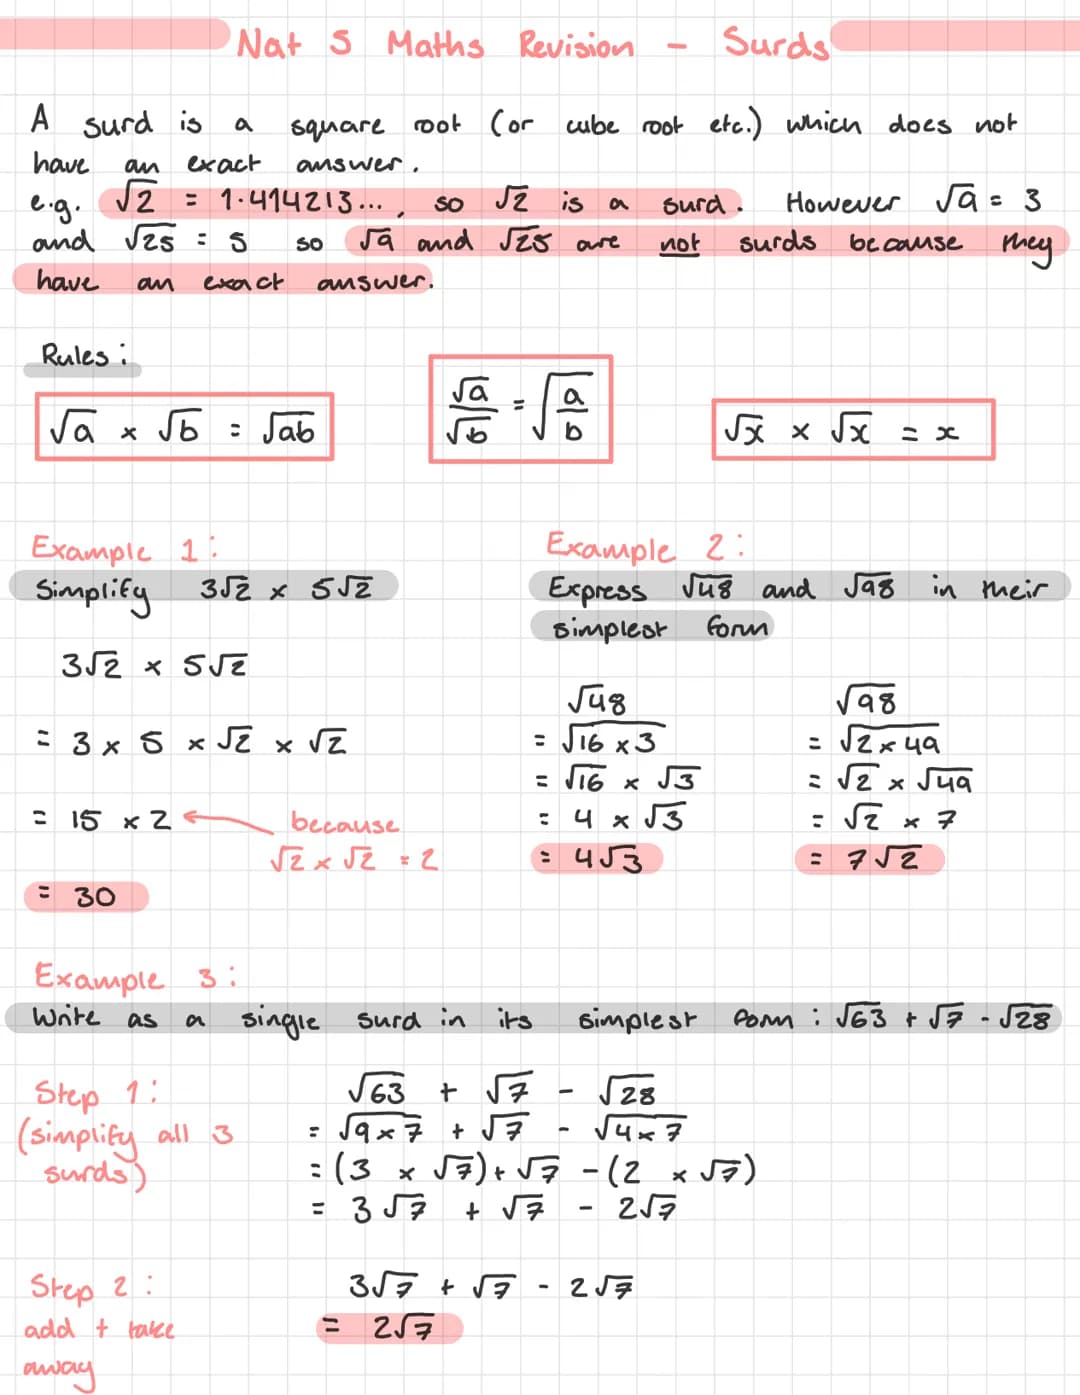 Nat 5 Maths Revision - Surds
A surd is a square root (or cube root etc.) which does not
have an exact answer.
e.g. √2 = 1.414213..., so √2 is a surd. However √9 = 3
and √25 = 5 so √9 and √25 are not surds because they
have an exact answer.
Rules:
√a × √b = √ab
√a/√b = √(a/b)
√x × √x = x
Example 1:
Simplify 3√2 × 5√2
3√2 × 5√2
= 3 × 5 × √2 × √2
= 15 × 2
because
√2 × √2 = 2
= 30
Example 2:
Express √48 and √98 in their
simplest form
√48
= √16 × 3
= √16 × √3
= 4 × √3
= 4√3
√98
= √2 × 49
= √2 × √49
= √2 × 7
= 7√2
Example 3:
Write as a single surd in its simplest form : √63 + √7 - √28
Step 1:
(simplify all 3
surds)
√63 + √7 - √28
= √9 × 7 + √7 - √4 × 7
= (3 × √7) + √7 - (2 × √7)
= 3√7 + √7 - 2√7
Step 2:
add + take
away
3√7 + √7 - 2√7
= 2√7